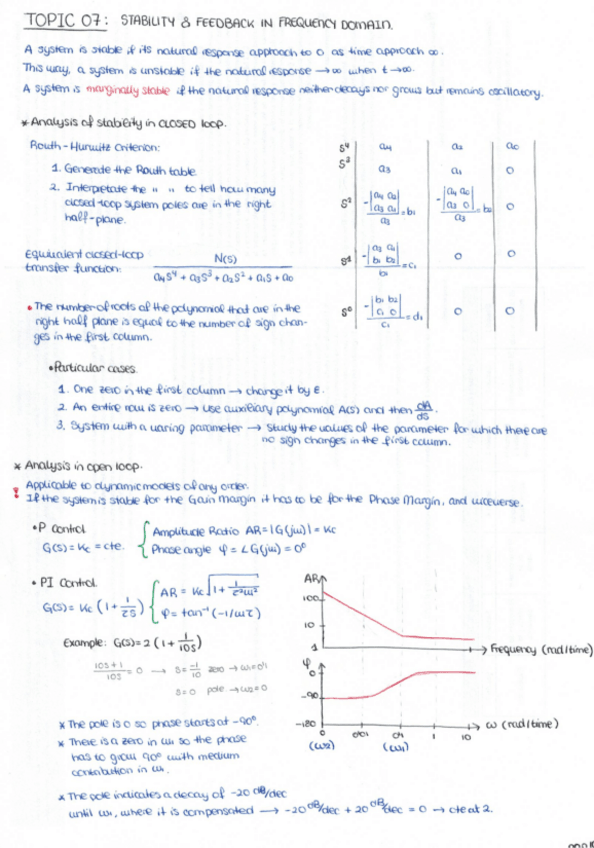 TOPIC 07: STABILITY & FEEDBACK IN FREQUENCY DOMAIN.
A system is stable if its natural response approach to 0 as time approach ∞.
This way, a system is unstable if the natural response → ∞ when t → ∞.
A system is marginally stable if the natural response neither decays nor grows but remains oscillatory.
* Analysis of stability in CLOSED loop.
Routh-Hurwitz Criterion:
1. Generate the Routh table.
2. Interpretate the " " to tell how many
closed-loop system poles are in the right
half-plane.
S⁴ a₄ a₂ a₀
S³ a₃ a₁ 0
S² -|a₄ a₂ / a₃ a₁| / a₃ = b₁ -|a₄ a₀ / a₃ 0| / a₃ = b₂ 0
S¹ -|a₃ a₁ / b₁ b₂| / b₁ = c₁ 0 0
S⁰ -|b₁ b₂ / c₁ 0| / c₁ = d₁ 0 0
Equivalent closed-loop
transfer function: N(S) / a₄S⁴ + a₃S³ + a₂S² + a₁S + a₀
• The number of roots of the polynomial that are in the
right half plane is equal to the number of sign chan-
ges in the first column.
• Particular cases.
1. One zero in the first column → change it by ε.
2. An entire row is zero → use auxiliary polynomial A(S) and then dA/dS.
3. System with a varing parameter → Study the values of the parameter for which there are
no sign changes in the first column.
* Analysis in open loop.
Applicable to dynamic models of any order.
! If the system is stable for the Gain Margin it has to be for the Phase Margin, and viceverse.
• P control
G(S) = Kc = cte.
Amplitude Ratio AR = |G(jω)| = Kc
Phase angle φ = ∠G(jω) = 0°
• PI control.
G(S) = Kc (1 + 1/τS)
AR = Kc √(1 + 1/τ²ω²)
φ = tan⁻¹(-1/ωτ)
Example: G(S) = 2 (1 + 1/10S)
10S+1 / 10S = 0 → S = -1/10 zero → ω₁ = 0'1
S = 0 pole → ω₂ = 0
* The pole is 0 so phase starts at -90°.
* There is a zero in ω₁ so the phase
has to grow 90° with medium
contribution in ω₁.
* The pole indicates a decay of -20 dB/dec
until ω₁, where it is compensated → -20 dB/dec + 20 dB/dec = 0 → cte at 2.
AR
100
10
1
Frequency (rad/time)
φ
0
-90
-180
0 0'01 0'1 1 10
ω (rad/time)
(ω₂) (ω₁)